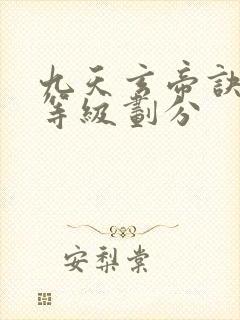 九天玄帝訣
等級劃分
安梨棠